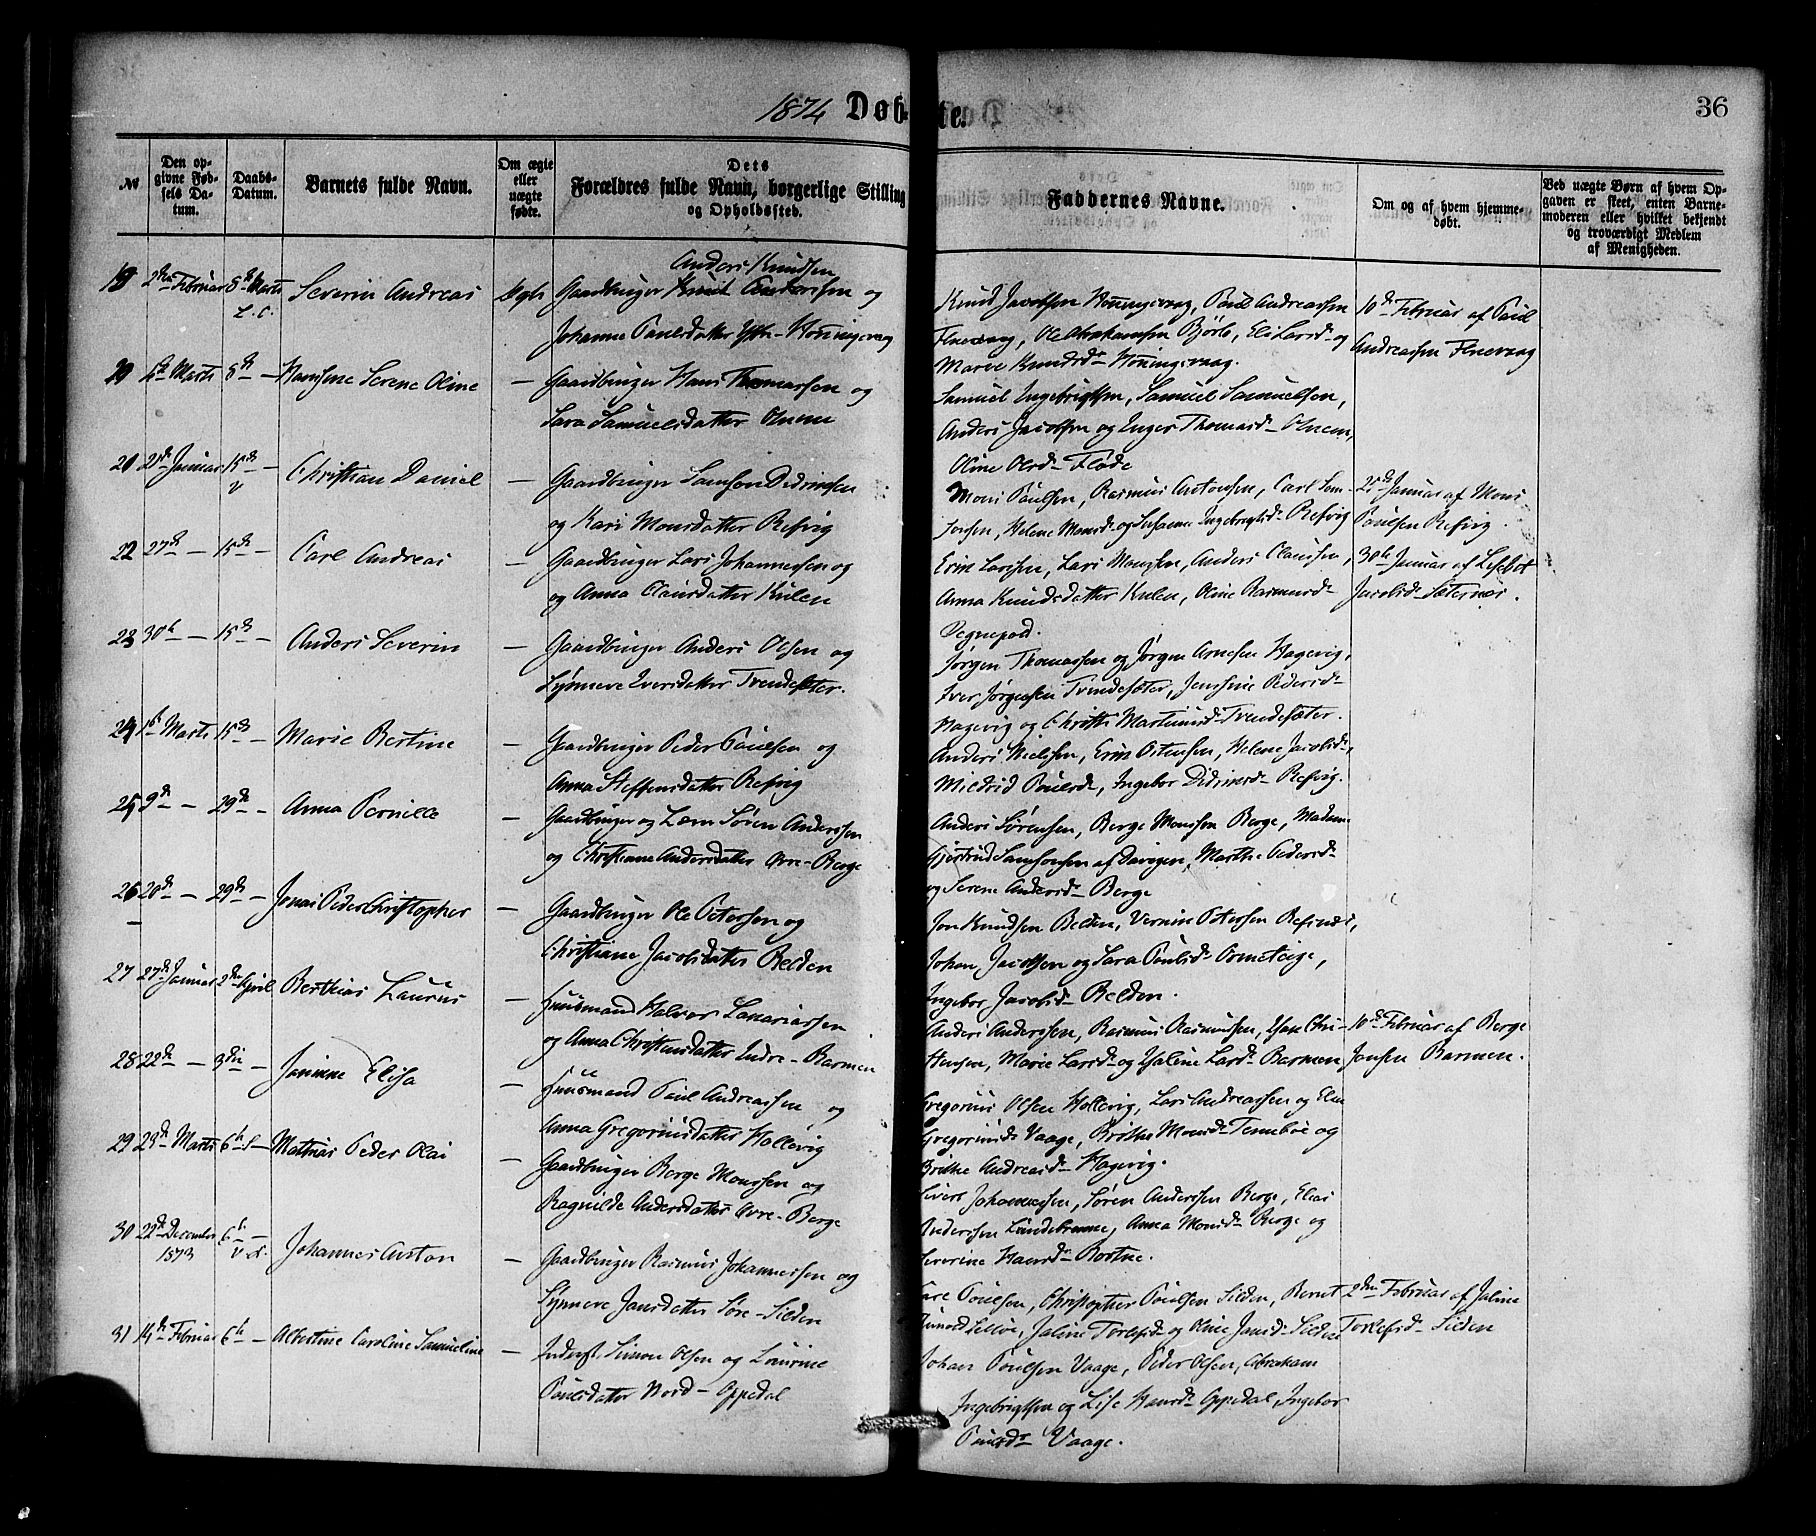 1874 Døb-te.
36
№
Den opgivne Fødsels Datum.
Daabs-Datum.
Barnets fulde Navn.
Om ægte eller uægte fødte.
Dets Forældres fulde Navn, borgerlige Stilling og Opholdssted.
Faddernes Navne.
Om og af hvem hjemmedøbt.
Ved uægte Børn af hvem Opgaven er skeet, enten Barnemoderen eller hvilket bekjendt og troværdigt Medlem af Menigheden.
Anders Knudsen
19 2den Februar 8de Marts Severin Andreas Ægte Gaardbruger Knut Andersen og
Johanne Paulsdatter Ytre-Honingsvaag
Knud Jacobsen Honingsvaag, Paul Andreassen
Flnevaag, Ole Abrahamsen Bjørlo, Eli Larsd- og
Marie Knudsd- Honingsvaag.
10de Februar af Paul
Andreassen Flnevaag
20 Marts 8de - Hansine Serene Oline - Gaardbruger Hans Thomassen og
Sara Samuelsdatter
Samuel Ingebrigtsen, Samuel Samuelsen,
Anders Jacobsen og Inger Thomasd-
Oline Olsd- Fløde
20 Januar 15de - Christian Daniel - Gaardbruger Samson Didriksen
og Kari Monsdatter Refvig
Mons Paulsen, Rasmus Antonsen, Carl Sem-
Jensen, Helene Monsd- og Susanne Ingebrigtsd- Refvig
25de Januar af Mons
Paulsen Refvig.
22 27de - 15de - Carl Andreas - Gaardbruger Lars Johannessen og
og Anna Clausdatter Kulen
Erik Larsen, Lars Monsen, Anders Claussen,
Anna Knudsdatter Kulen, Oline Rasmusd-
Degnepod.
30te Januar af Lisebet
Jacobsd- Sæternes.
23 30te - 15de - Anders Severin - Gaardbruger Anders Olsen og
Synneve Iversdatter Trendesæter.
Jørgen Thomassen og Jørgen Arnesen Hagevig,
Iver Jørgensen Trendesæter, Jensine Pedersd-
Hagevig og Christi Martinusd- Trendesæter.
24 1ste Marts 15de - Marie Bertine - Gaardbruger Peder Paulsen og
Anna Steffensdatter Refvig
Anders Nielssen, Erik Ostensen, Helene Jacobsd-,
Mildrid Paulsd-, Ingebor Didriksd- Refvig.
25 9de - 29de - Anna Pernille - Gaardbruger og Lærer Søren Anderssen
og Christiane Andersdatter Øvre-Berge
Anders Sørensen, Berge Monssen Berge, Madam
Gjertrud Samsonsen af Davigen, Marthe Pedersd-
og Serene Andersd- Berge
26 20de - 29de - Jonas Peder Christopher - Gaardbruger Ole Petersen og
Christiane Jacobsdatter Belden
Jon Knudsen Belden, Vernik Petersen Refsnæs,
Johan Jacobsen og Sara Paulsd- Ormeteige,
Ingebor Jacobsd- Belden.
27 27de Januar 2den April Berthias Laurus - Huusmand Halvor Zakariassen
og Anna Christensdatter Indre-Barmen
Anders Anderssen, Rasmus Rasmussen, Isak Chri-
stensen, Marie Larsd- og Jaline Larsd- Barmen
10de Februar af Berge
Jonsen Barmen.
28 22de - 3die - Janine Elisa - Huusmand Paul Andreassen og
Anna Gregoriusdatter Hollevig
Gregorius Olsen Hollevig, Lars Andreassen og Elen
Gregoriusd- Vaage, Brithe Monsd- Tennebøe og
Brithe Andreasd- Hagevig.
29 23de Marts 6te - Mathias Peder Olai - Gaardbruger Berge Monssen og
Ragnilde Andersdatter Øvre-Berge
Sivert Johannessen, Søren Anderssen Berge, Elias
Anderssen Lundebrenne, Anna Monsd- Berge og
Severine Hansd- Bortne.
30 22de December 1873 6te - Johannes Anton - Gaardbruger Rasmus Johannessen og
Synneve Jansdatter Søre-Silden
Carl Paulsen, Christopher Paulsen Silden, Bernt
Jaline Torlefsd- og Oline Jansd- Silden
2den Februar af Jaline
Torlefsd- Silden
31 14de Februar 6te - Albertine Caroline Samueline - Inderst. Simon Olsen og Laurine
Paulsdatter Nord-Oppedal
Johan Paulsen Vaage, Peder Olsen, Abraham
Ingebrigtsen og Lise Hansd- Oppedal, Ingebor
Paulsd- Vaage.